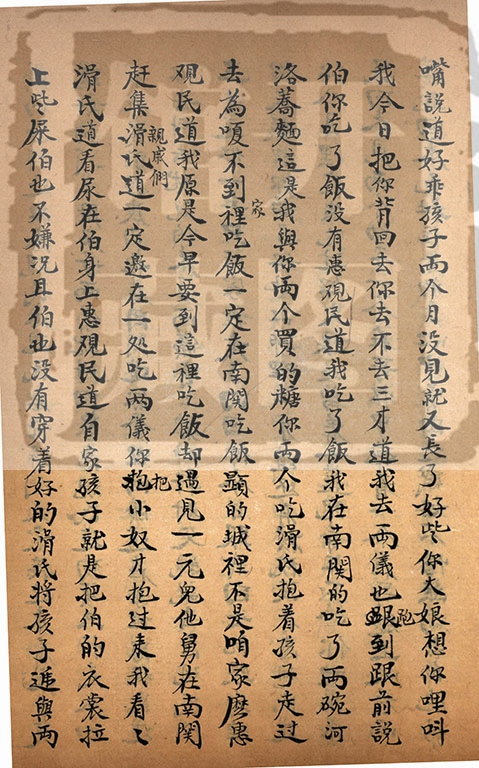 嘴說道好乖孩子兩个月没見就又長了好些你大娘想你哩呌
我今日把你背回去你去不去三才道我去兩儀也跑到跟前說
伯你吃了飯没有惠覌民道我吃了飯我在南関的吃了兩碗河
洛蕎麵這是我與你兩个買的糖你兩个吃滑氏抱着孩子走过
去為嗄不到家裡吃飯一定在南関吃飯顕的城裡不是咱家麽惠
覌民道我原是今早要到這裡吃飯却遇見一元兒他舅在南関
赶集親戚們滑氏道一定邀在一処吃兩儀你把小奴才抱过来我看〻
滑氏道看尿在伯身上惠覌民道自家孩子就是把伯的衣裳拉
上些屎伯也不嫌况且伯也没有穿着好的滑氏将孩子逓與兩